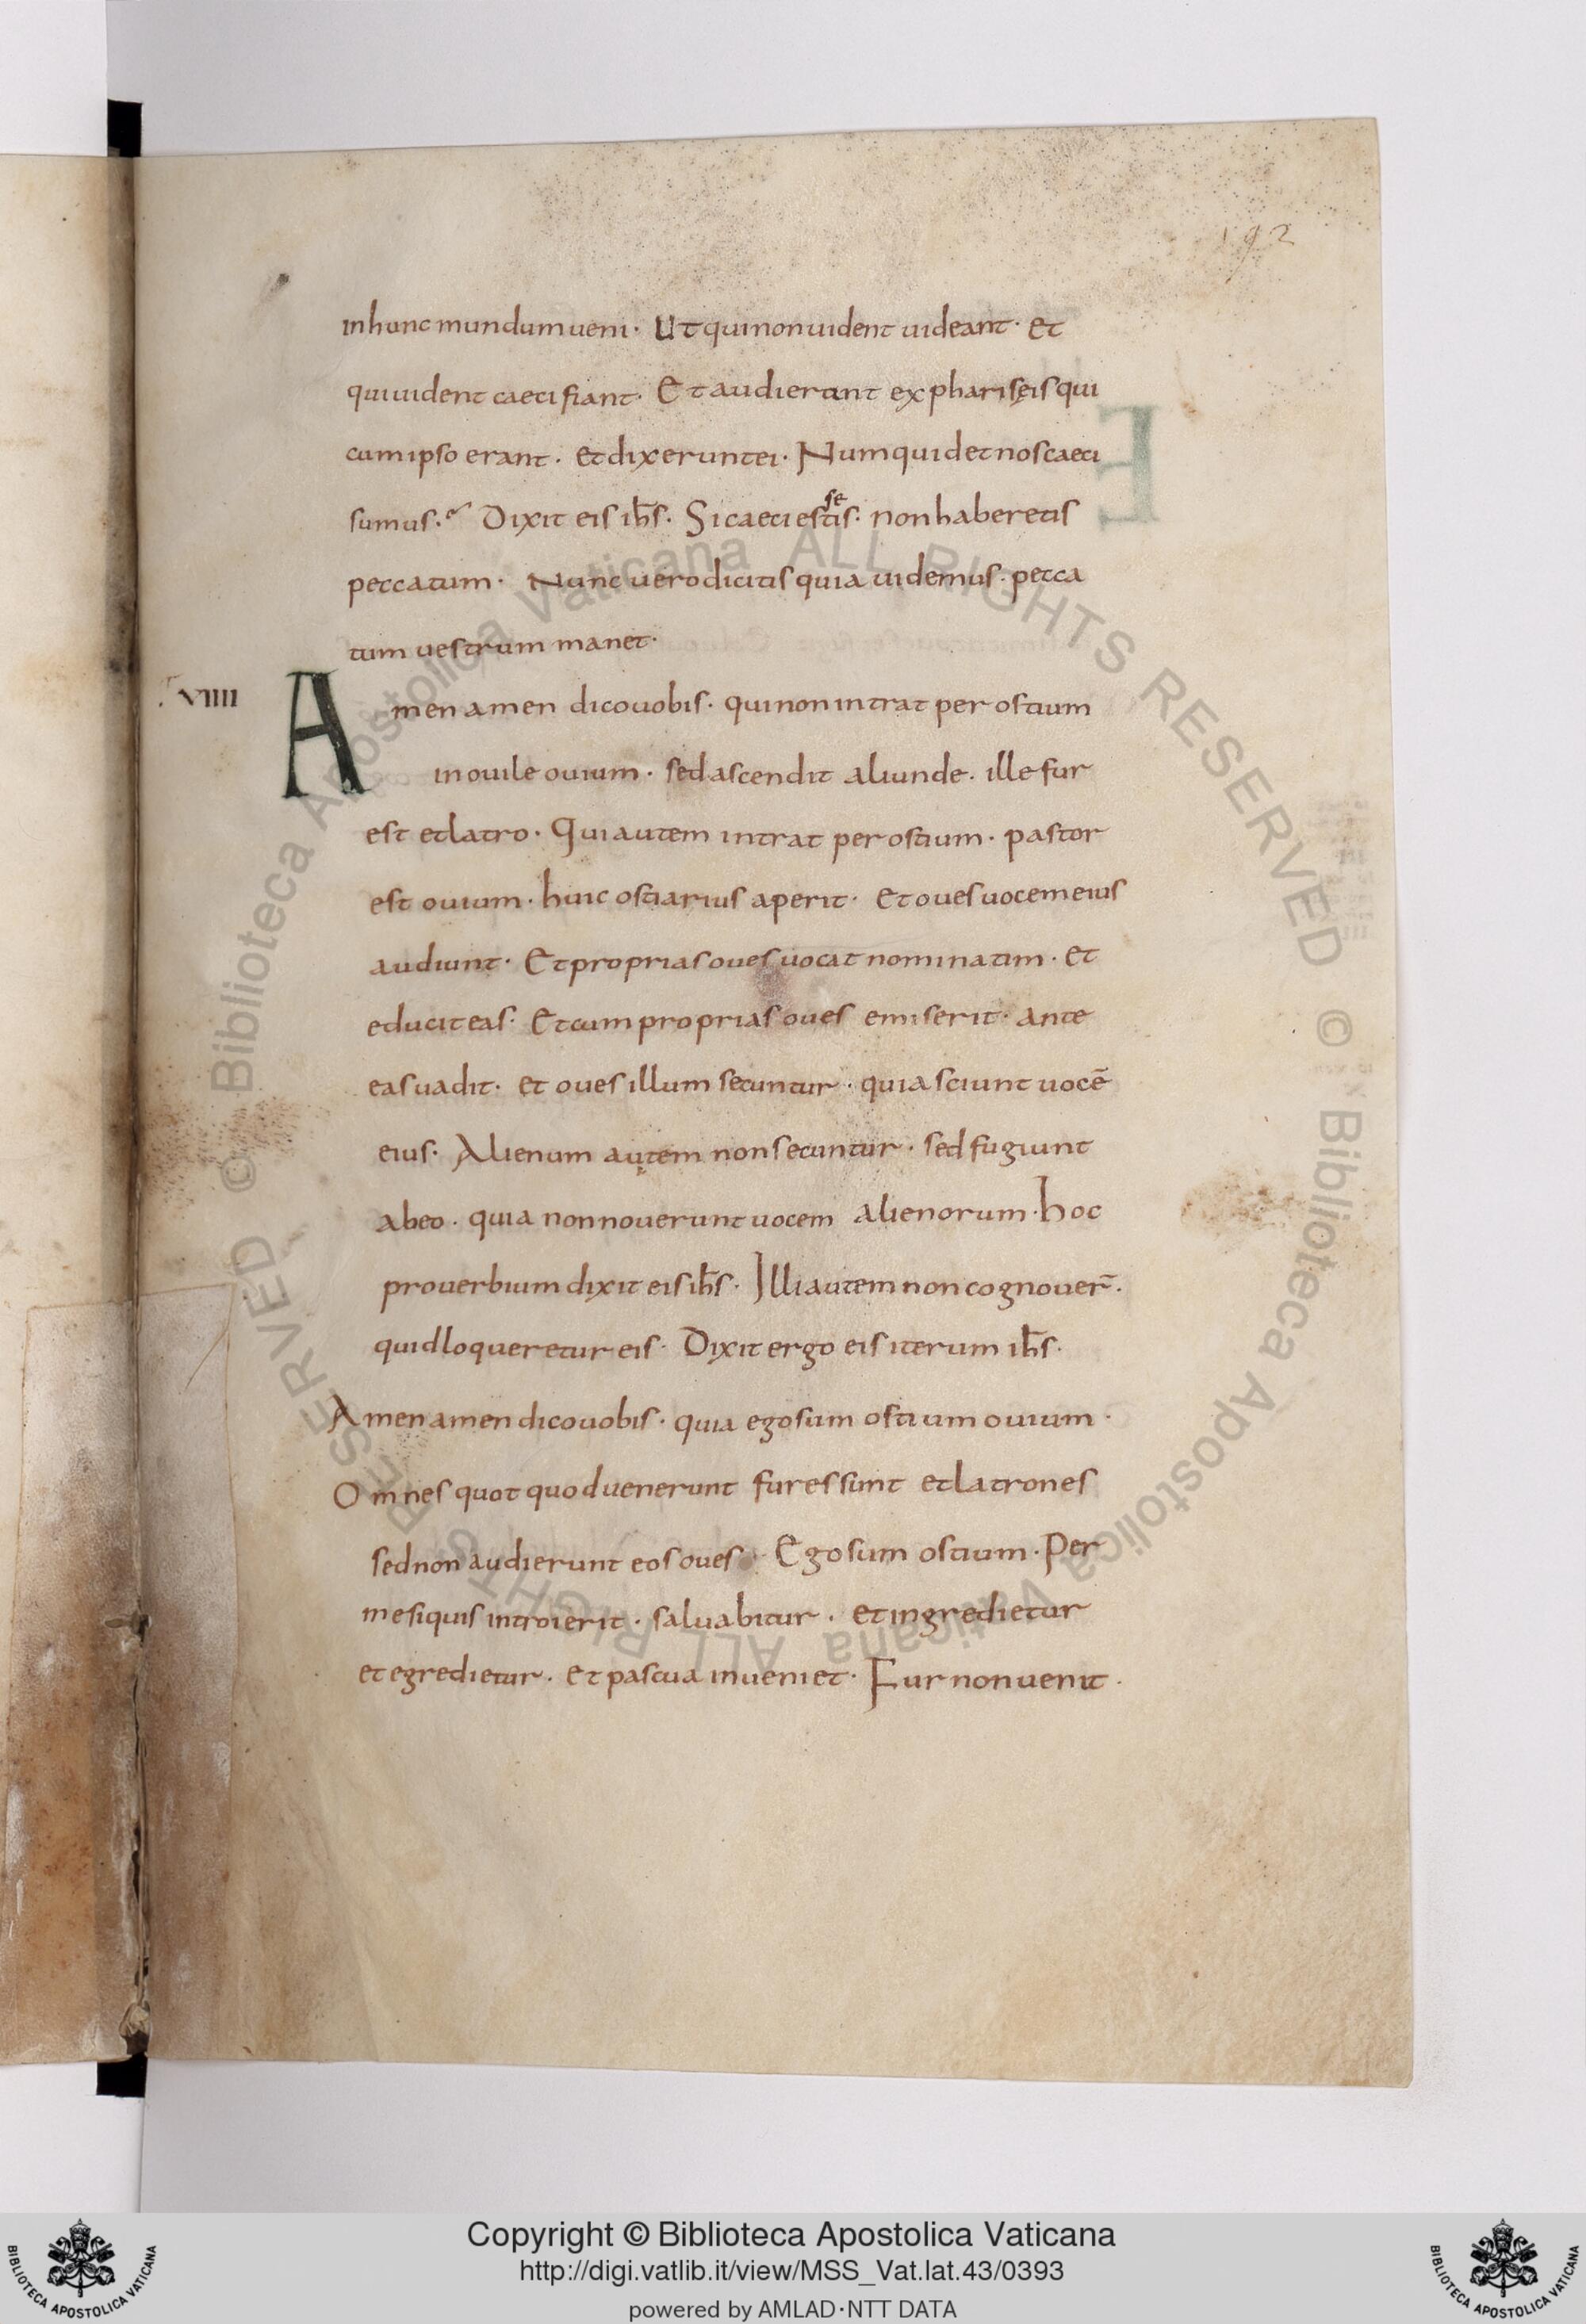 192
inhunc mundum ueni· Ut qui non uident uideant· et
qui uident caeci fiant· Et audierunt ex phariseis qui
cum ipso erant· et dixerunt ei· Numquid et nos caeci
sumus· Dixit eis ihs̄· Si caeci estis· non haberetis
se
peccatum· Nunc uero dicitis quia uidemus· pecca
tum uestrum manet·
VIIII
Amen amen dico uobis· qui non intrat per ostium
in ouile ouium· sed ascendit aliunde· ille fur
est et latro· Qui autem intrat per ostium· pastor
est ouium· huic ostiarius aperit· Et oues uocem eius
audiunt· Et proprias oues uocat nominatim· et
educit eas· Et cum proprias oues emiserit· ante
eas uadit· et oues illum secuntur· quia sciunt uocē
eius· Alienum autem non secuntur· sed fugiunt
ab eo· quia non nouerunt uocem alienorum· hoc
prouerbium dixit eis ihs̄· Illi autem non cognouer̄·
quid loqueretur eis· Dixit ergo eis iterum ihs̄·
Amen amen dico uobis· quia ego sum ostium ouium·
Omnes quotquod uenerunt fures sunt et latrones
sed non audierunt eos oues· Ego sum ostium· Per
me si quis introierit· saluabitur· et ingredietur
et egredietur· et pascua inueniet· Fur non uenit·
© Biblioteca Apostolica Vaticana ALL RIGHTS RESERVED © Biblioteca Apostolica Vaticana ALL RIGHTS RESERVED
Copyright © Biblioteca Apostolica Vaticana
http://digi.vatlib.it/view/MSS_Vat.lat.43/0393
powered by AMLAD·NTT DATA
BIBLIOTECA APOSTOLICA VATICANA
BIBLIOTECA APOSTOLICA VATICANA